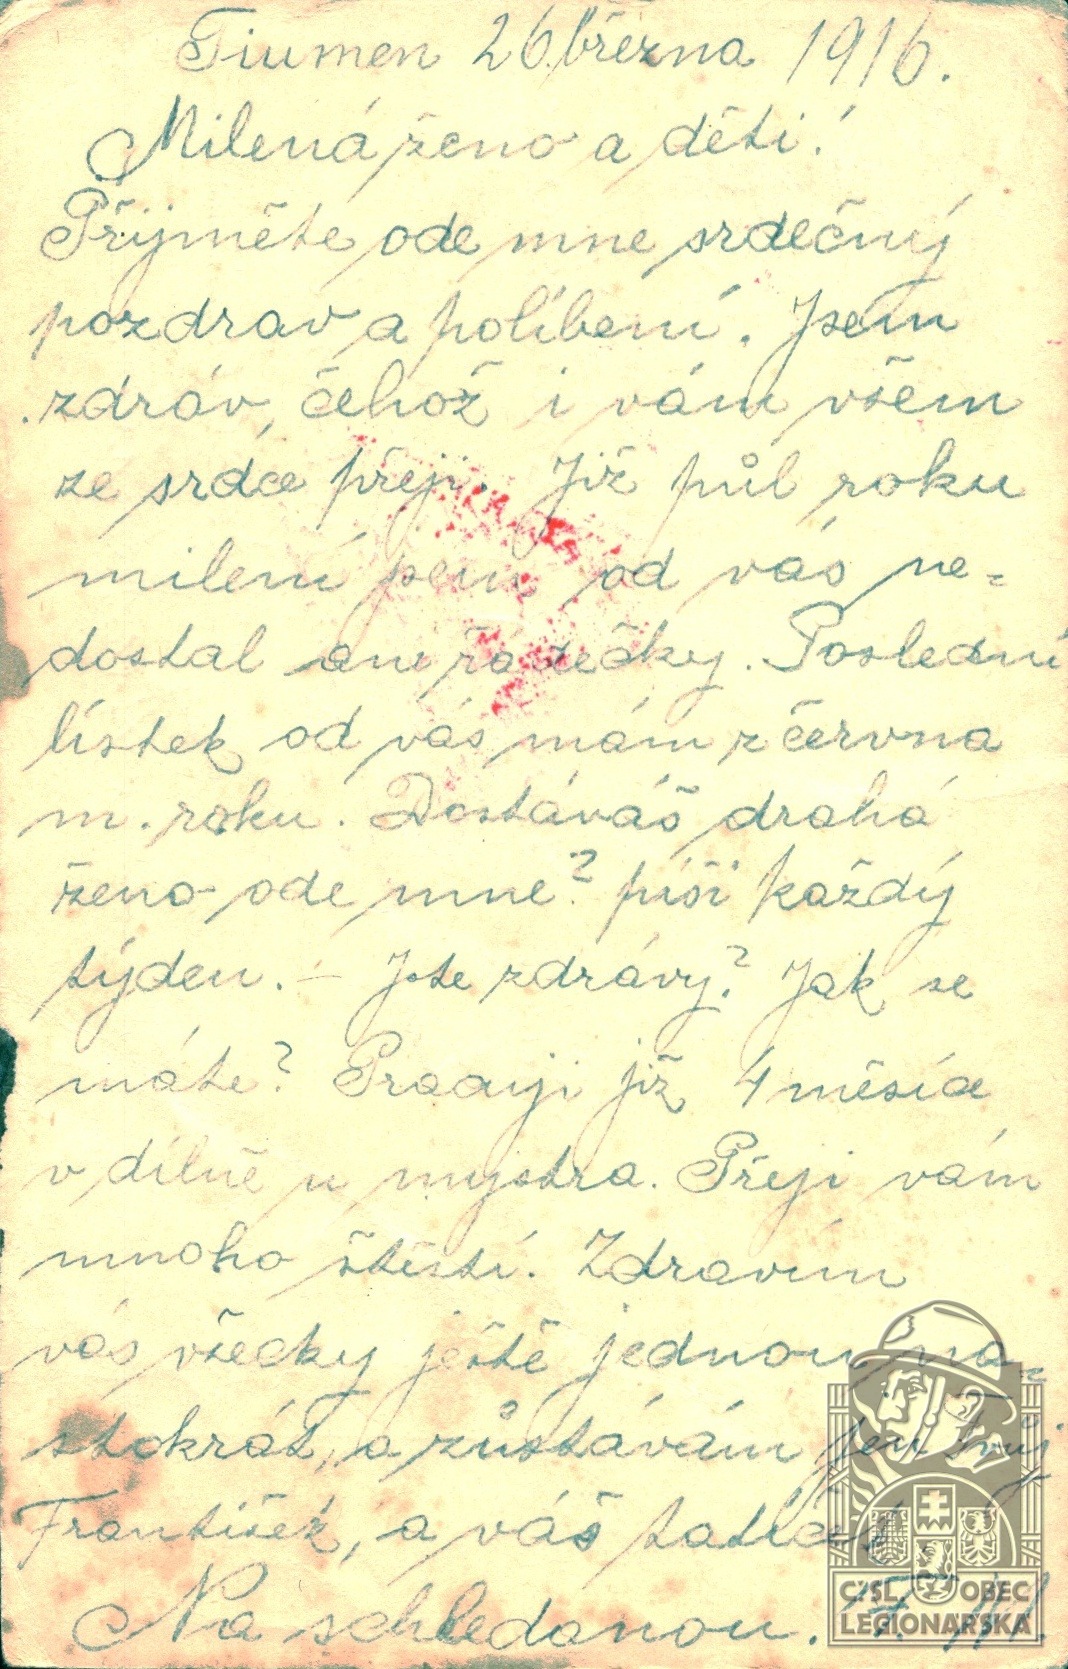 Tiumen 26. března 1916.
Milená ženo a děti!
Přijměte ode mne srdečný
pozdrav a políbení. Jsem
zdráv, čehož i vám všem
ze srdce přeji. Již půl roku
milení jsem od vás ne-
dostal ani řádečky. Poslední
lístek od vás mám z června
m. roku. Dostáváš drahá
ženo ode mne? píši každý
týden. – Jste zdrávy? Jak se
máte? Pracuji již 4 měsíce
v dílně u mystra. Přeji vám
mnoho štěstí. Zdravím
vás všecky ještě jednou na-
stokrát, a zůstávám jen Tvůj
František, a váš tatíček
Na schledanou.
ČSL. OBEC
LEGIONÁŘSKÁ